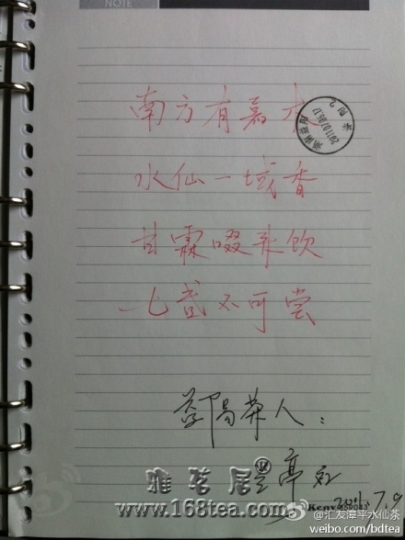 NOTE
南方有嘉木
水仙一域香
甘霖啜来饮
七盏不可尝
茶人:
雅茗居
www.168tea.com
2011.7.9
@汇友漳平水仙茶
weibo.com/bdtea